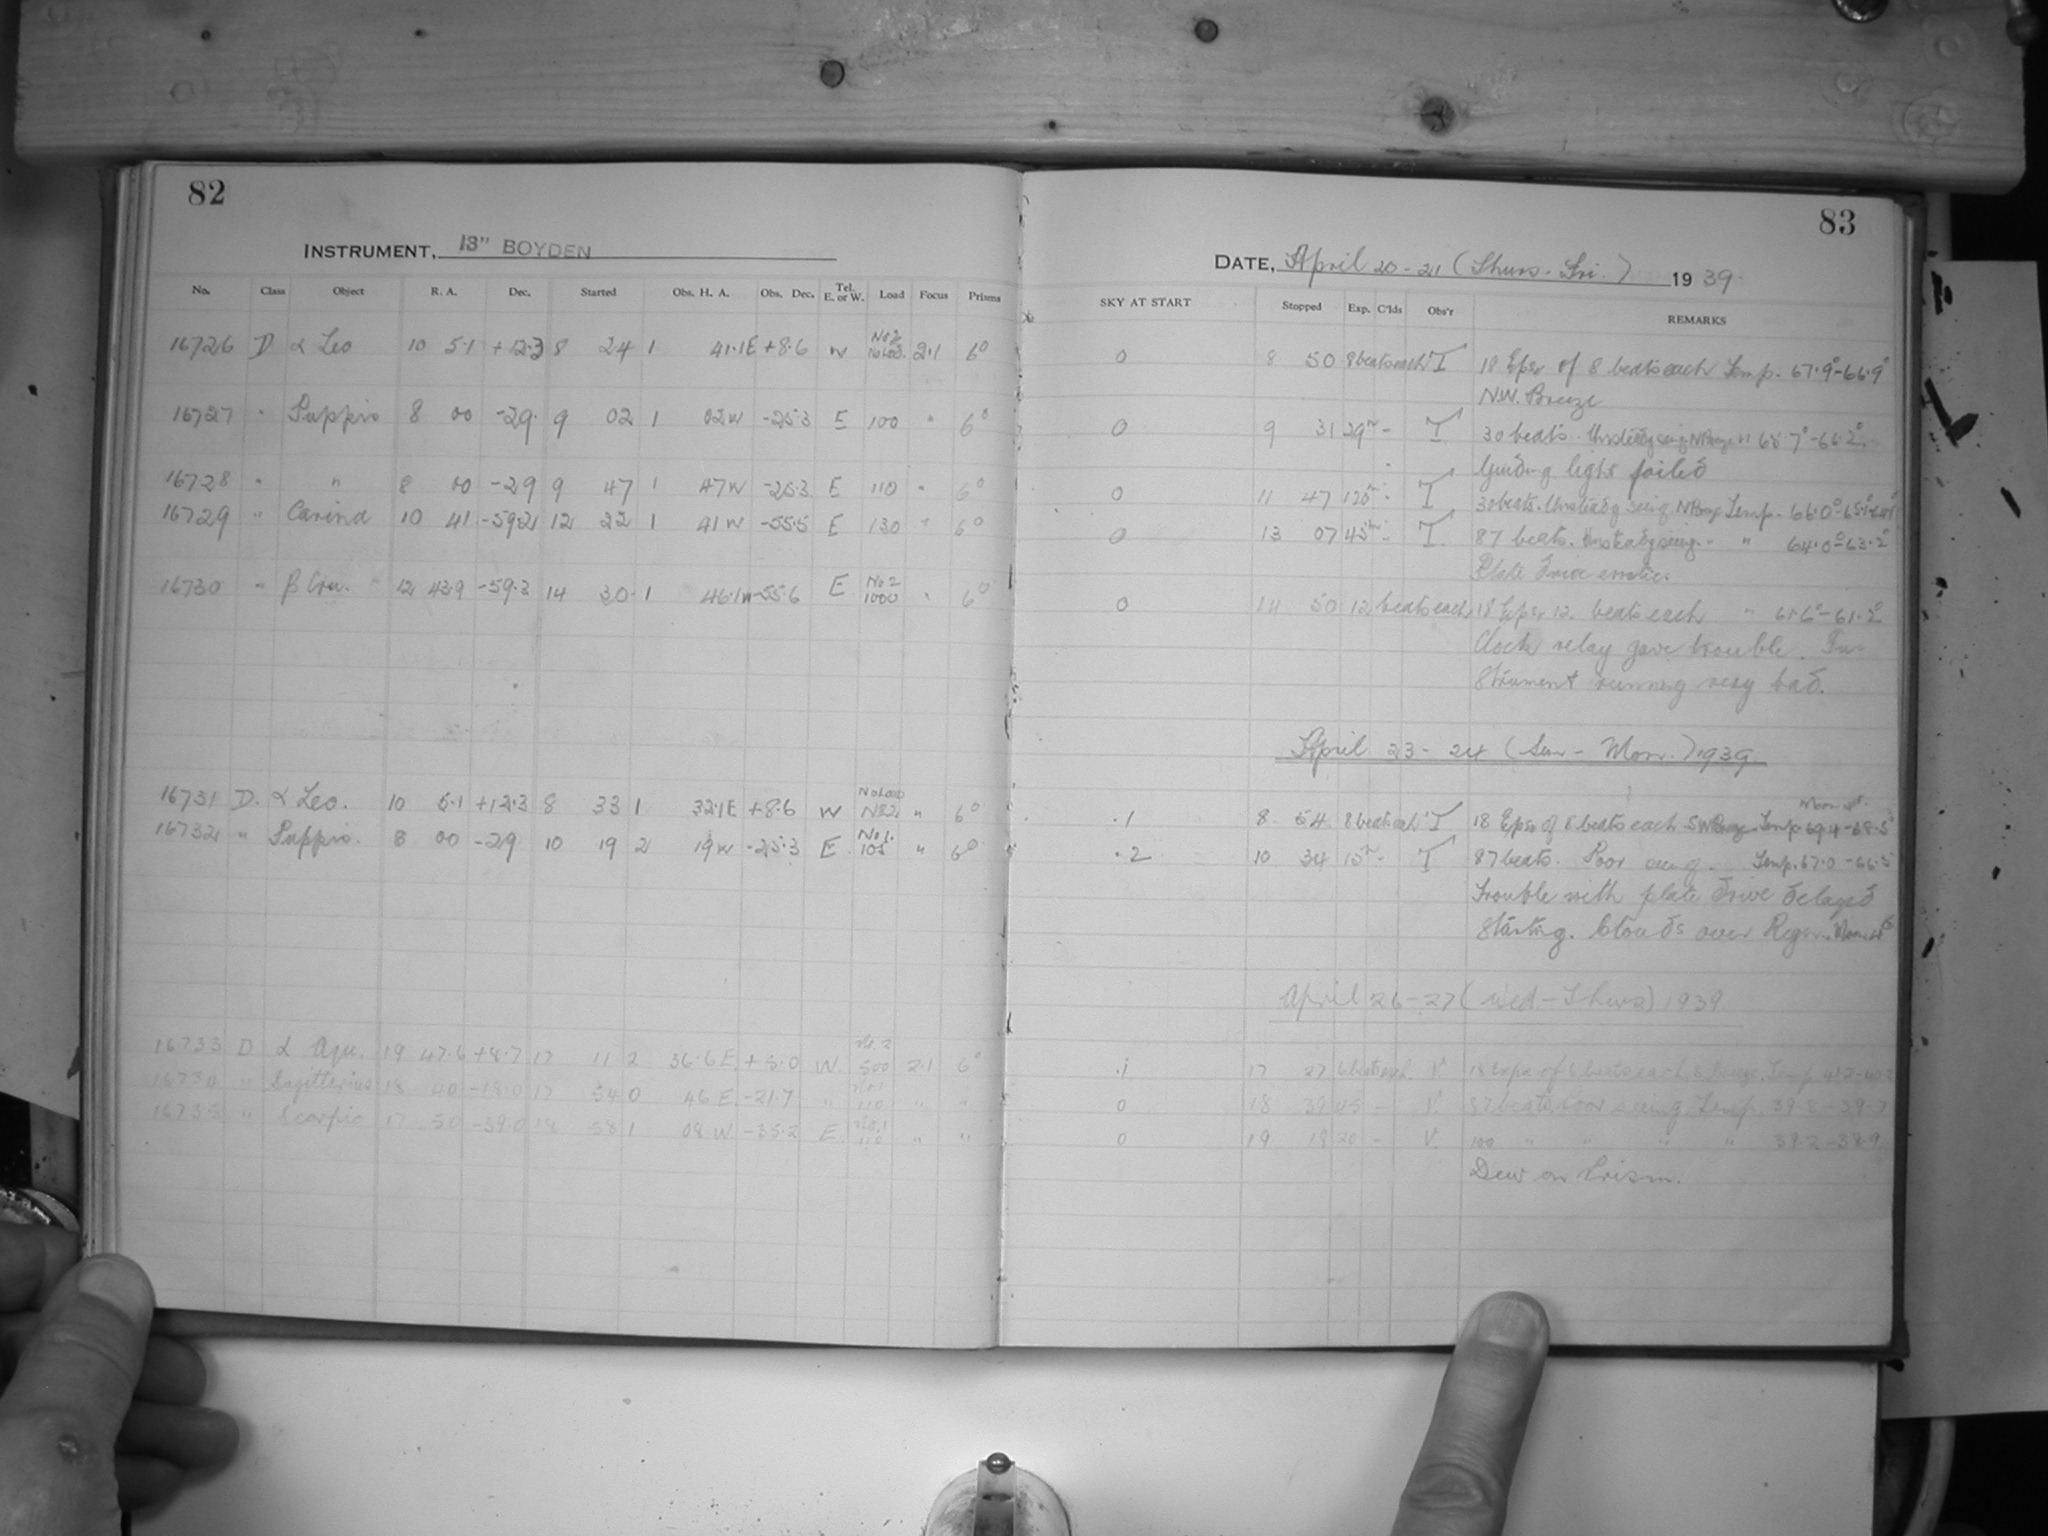 82
INSTRUMENT, 13" BOYDEN
No. Class Object R. A. Dec. Started Obs. H. A. Obs. Dec. Tel. E. or W. Load Focus Prisms
16726 D α Leo 10 5.1 +12.3 8 24 1 41.1E +8.6 W No 2 No Load. 2.1 6°
16727 " Puppis 8 00 -29. 9 02 1 02 W -25.3 E 100 " 6°
16728 " " 8 00 -29 9 47 1 47 W -25.3 E 110 " 6°
16729 " Carina 10 41 -59.2 12 22 1 41 W -55.5 E 130 " 6°
16730 " β Cru. 12 43.9 -59.3 14 30 1 46.1W -55.6 E No 2 1000 " 6°
16731 D. α Leo. 10 5.1 +12.3 8 33 1 32.1E +8.6 W No Load No 2. " 6°
16732 " Puppis. 8 00 -29 10 19 2 19 W -25.3 E No 1. 105 " 6°
16733 D α Aqu. 19 47.6 +8.7 17 11 2 36.6 E. +5.0 W. No. 2 500 2.1 6°
16734 " Sagittarius 18 40 -18.0 17 54 0 46 E. -21.7 " No 1 110 " "
16735 " Scorpio 17 50 -39.0 18 58 1 08 W -35.2 E. No. 1 110 " "
83
DATE, April 20-21 (Thurs. Fri.) 1939
SKY AT START Stopped Exp. C'lds Obs'r REMARKS
0 8 50 8 beats each T 18 Exps of 8 beats each Temp. 67.9°-66.9°
N.W. Breeze
0 9 31 29m - T 30 beats. Unsteady seeing N Breeze 68.7°-66.2°
Guiding light failed
0 11 47 120m - T 30 beats. Unsteady seeing N Breeze Temp. 66.0°-65.1°
0 13 07 45m - T 87 beats. Unsteady seeing. " " 64.0°-63.2°
Plate Drive erratic.
0 14 50 12 beats each 18 Exps 12 beats each " 61.6°-61.2°
Clock relay gave trouble. In-
strument running very bad.
April 23-24 (Sun - Mon.) 1939.
.1 8 54 8 beats each T 18 Exps of 8 beats each S W Breeze Temp. 69.4-68.5°
.2 10 34 15m - T 87 beats. Poor seeing. Temp. 67.0-66.5
Trouble with plate Drive Delayed
Starting. Clouds over Region.
April 26-27 (Wed-Thurs) 1939.
.1 17 27 6 beats each V. 18 Exps of 6 beats each Temp. 41.2-40.2
0 18 39 45 - V. 87 beats, Poor seeing Temp. 39.8-39.7
0 19 18 20 - V. 100 " " " " 39.2-38.9
Dew on Prism.